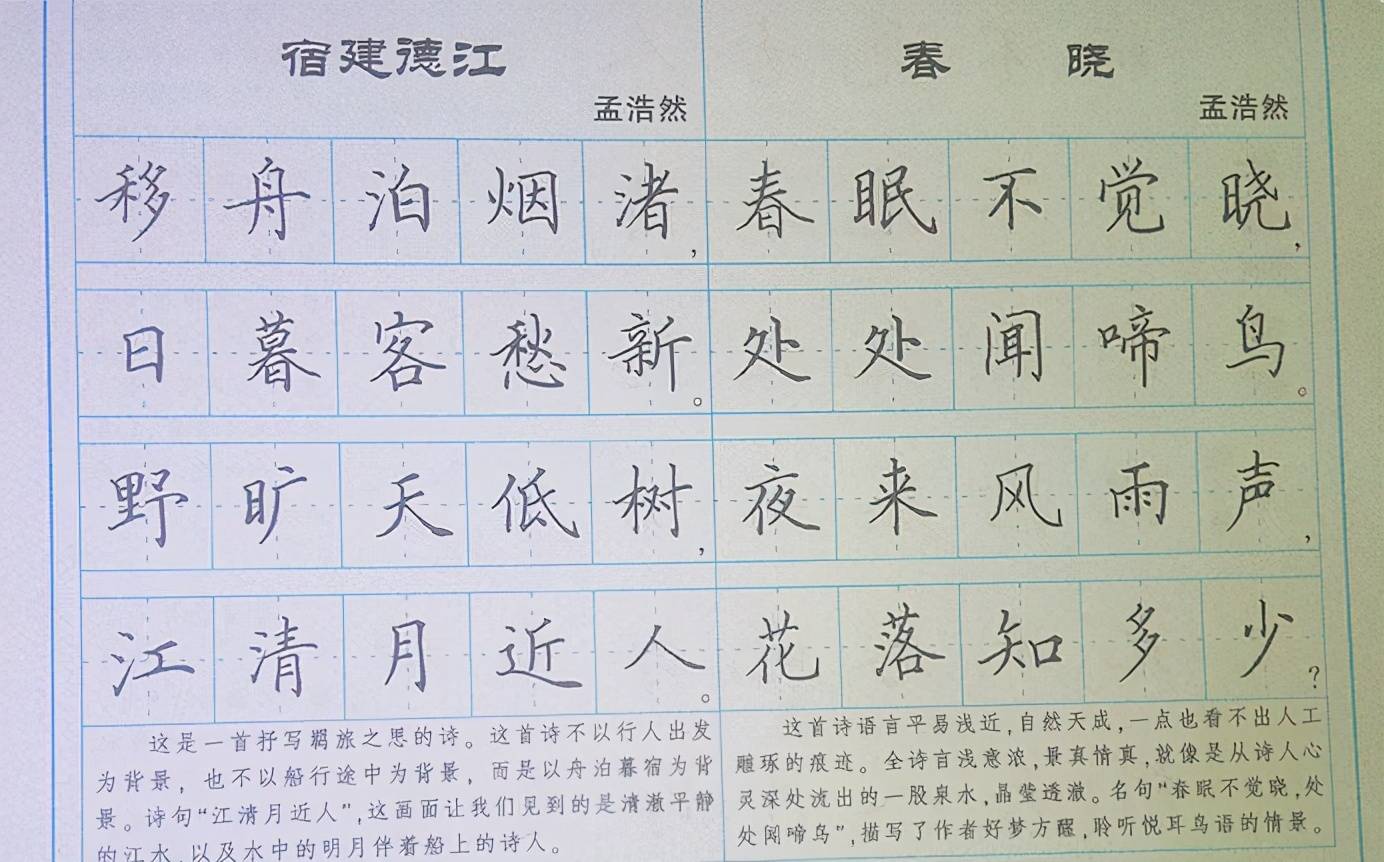 宿建德江
孟浩然
移舟泊烟渚，
日暮客愁新。
野旷天低树，
江清月近人。
这是一首抒写羁旅之思的诗。这首诗不以行人出发
为背景，也不以船行途中为背景，而是以舟泊暮宿为背
景。诗句“江清月近人”，这画面让我们见到的是清澈平静
的江水，以及水中的明月伴着船上的诗人。
春晓
孟浩然
春眠不觉晓，
处处闻啼鸟。
夜来风雨声，
花落知多少？
这首诗语言平易浅近，自然天成，一点也看不出人工
雕琢的痕迹。全诗言浅意浓，景真情真，就像是从诗人心
灵深处流出的一股泉水，晶莹透澈。名句“春眠不觉晓，处
处闻啼鸟”，描写了作者好梦方醒，聆听悦耳鸟语的情景。